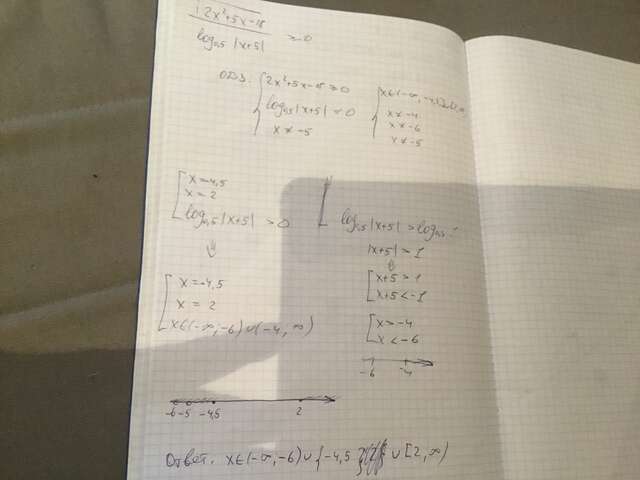 √2x²+5x-18
log₀,₅ |x+5| ≥ 0
ОДЗ: { 2x²+5x-18 ≥ 0
log₀,₅|x+5| ≠ 0
x ≠ -5
x ≠ -4
x ≠ -6
x ≠ -5
[ x=-4,5
x=2
log₀,₅|x+5| > 0
⇓
log₀,₅|x+5| > log₀,₅ 1
|x+5| > 1
⇕
[ x+5 > 1
x+5 < -1
[ x=-4,5
x = 2
x∈(-∞,-6)∪(-4,∞)
[ x > -4
x < -6
-6 -4
-6 -5 -4,5 2
Ответ. x∈(-∞,-6)∪{-4,5} ∪ [2,∞)